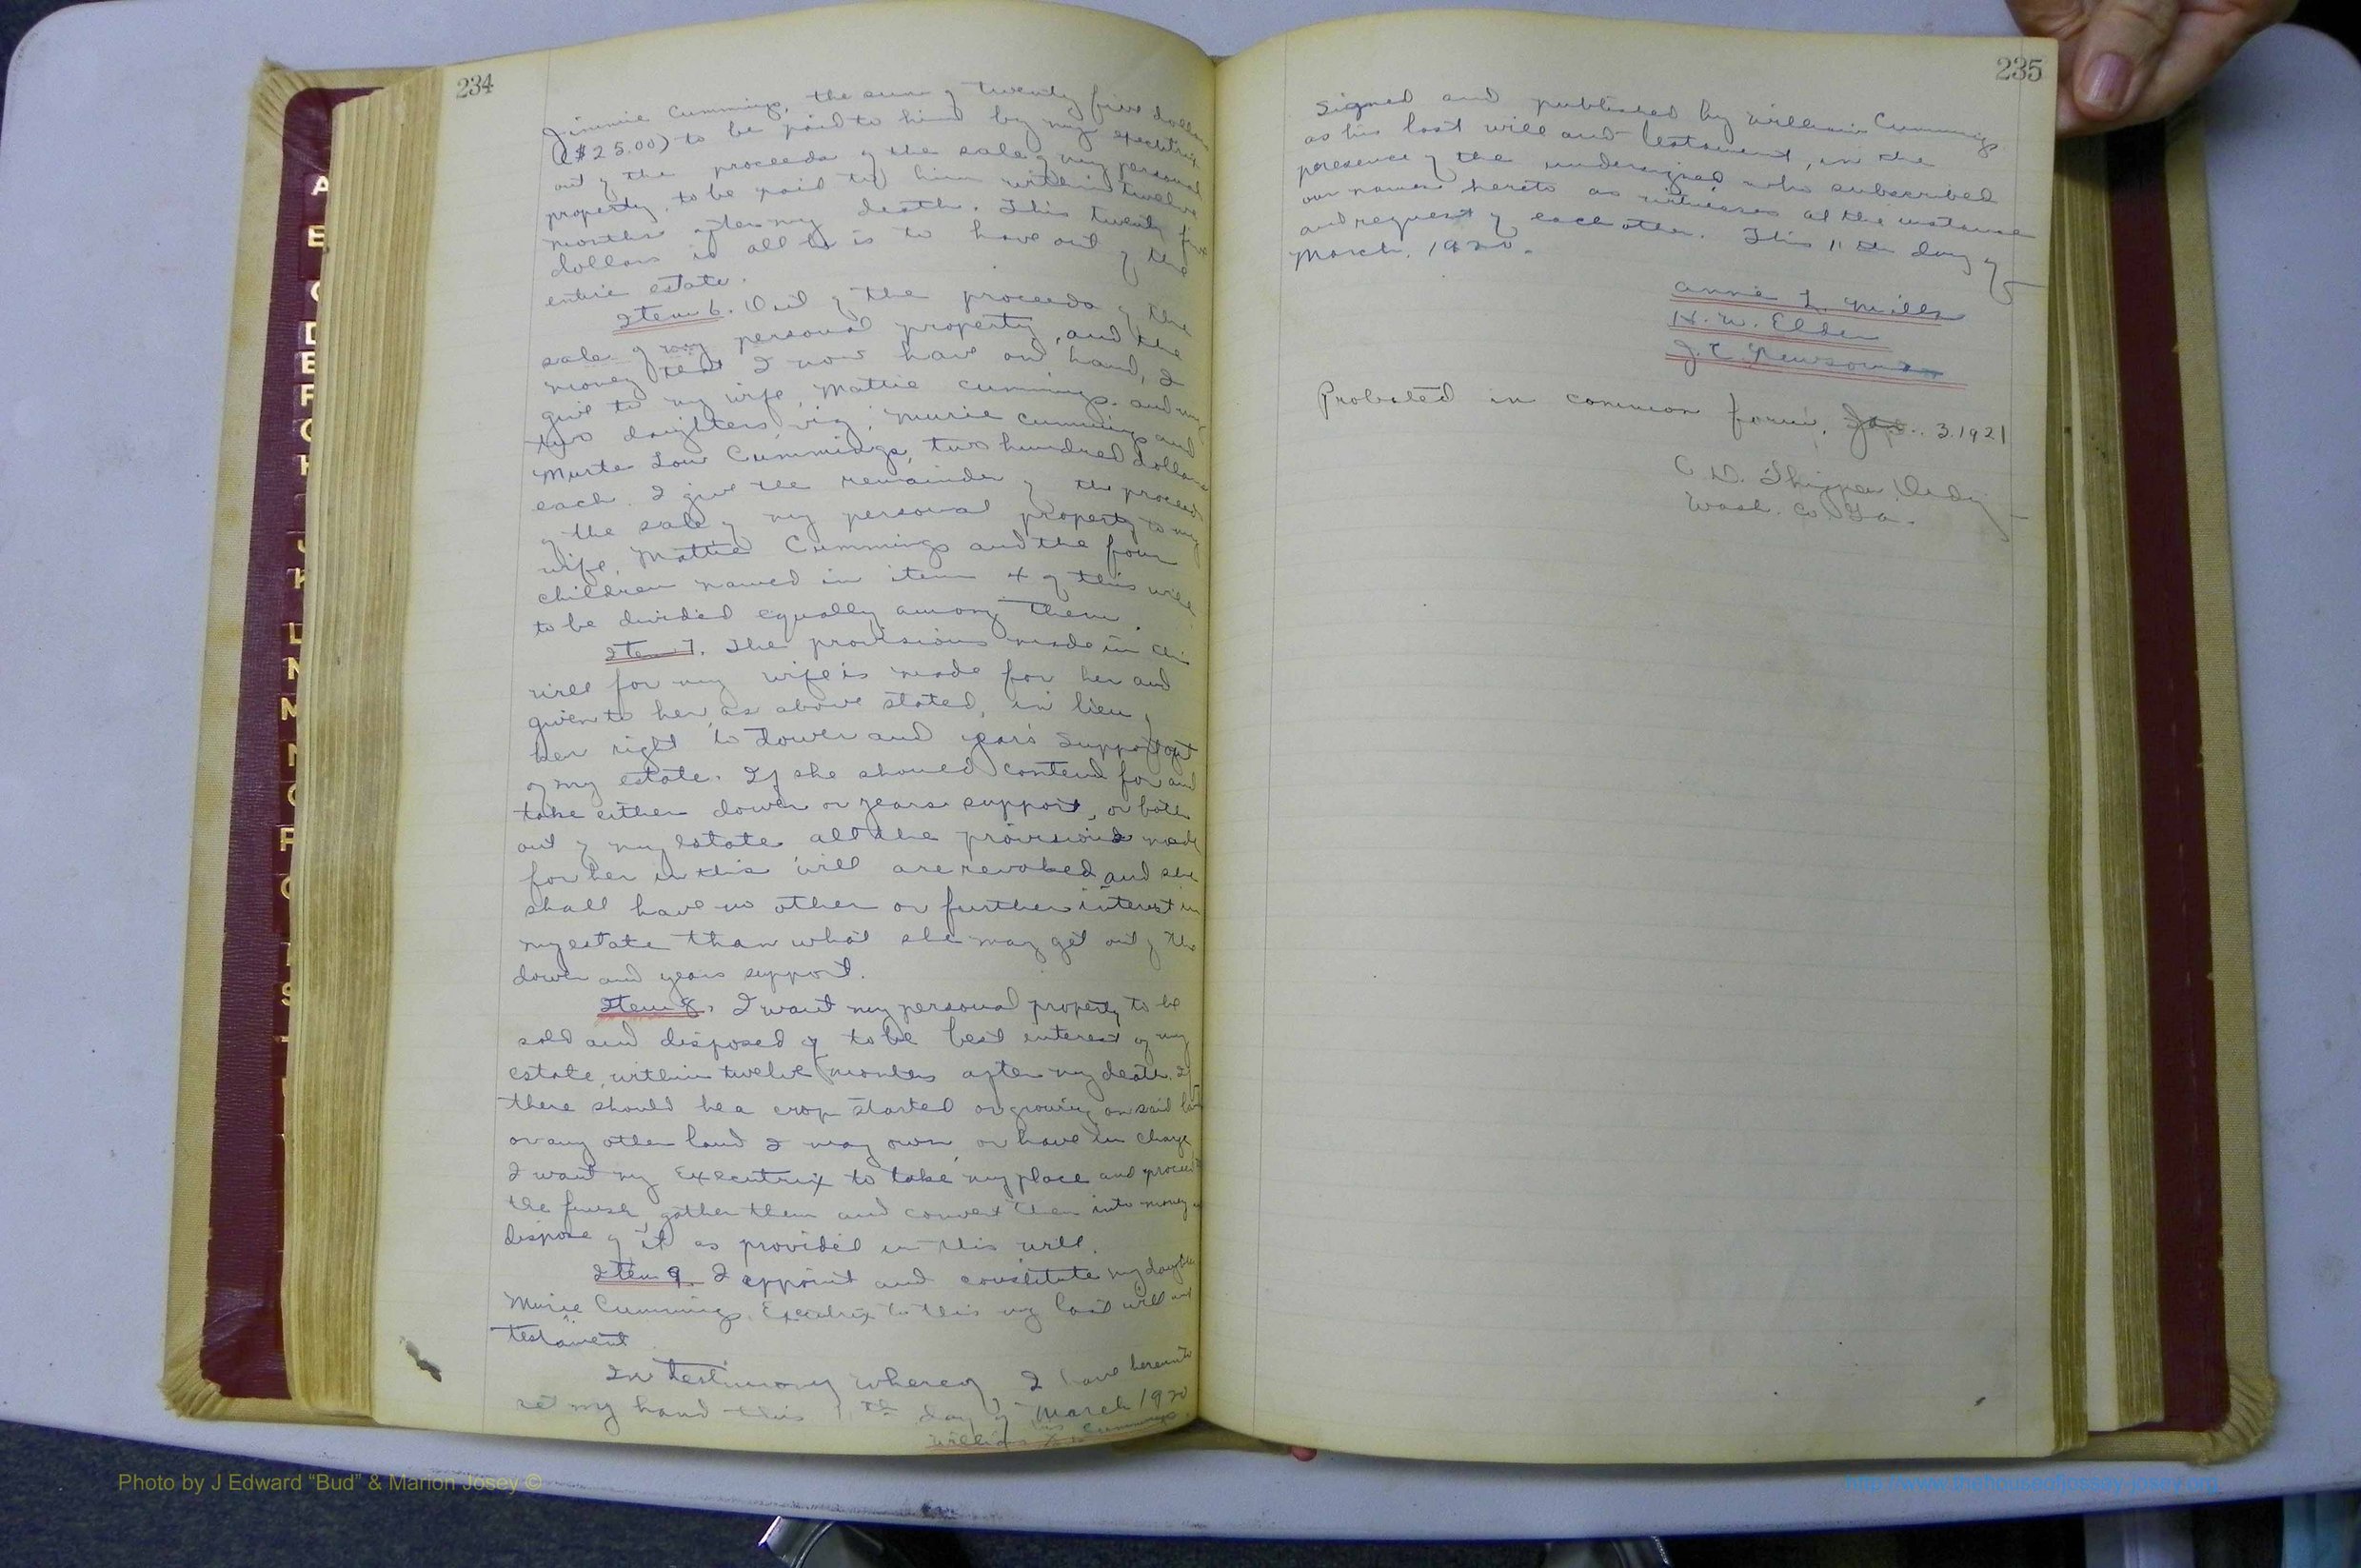 234
Jimmie Cummings, the sum of twenty five dollars
($25.00) to be paid to him by my executrix
out of the proceeds of the sale of my personal
property, to be paid to him within twelve
months after my death. This twenty five
dollars is all he is to have out of the
entire estate.
Item 6. Out of the proceeds of the
sale of my personal property, and the
money that I now have on hand, I
give to my wife, Mattie Cummings, and my
two daughters, viz; Murie Cummings and
Murte Lou Cummings, two hundred dollars
each. I give the remainder of the proceeds
of the sale of my personal property to my
wife, Mattie Cummings and the four
children named in item 4 of this will
to be divided equally among them.
Item 7. The provisions made in this
will for my wife is made for her and
given to her, as above stated, in lieu of
her right to dower and years support out
of my estate. If she should contend for and
take either dower or years support, or both
out of my estate all the provisions made
for her in this will are revoked and she
shall have no other or further interest in
my estate than what she may get out of the
dower and years support.
Item 8. I want my personal property to be
sold and disposed of to the best interest of my
estate, within twelve months after my death. If
there should be a crop started or growing on said land
or any other land I may own, or have in charge
I want my Executrix to take my place and proceed
the finish, gather them and convert them into money &
dispose of it as provided in this will.
Item 9. I appoint and constitute my daughter
Murie Cummings, Executrix to this my last will and
testament
In testimony whereof, I have hereunto
set my hand this 11th day of March 1920
his
William X Cummings
235
Signed and published by William Cummings
as his last will and testament, in the
presence of the undersigned who subscribed
our names hereto as witnesses at the instance
and request of each other. This 11th day of
March, 1920.
Annie L. Mills
H. W. Elder
J. C. Newsom
Probated in common form, Jan. 3. 1921
C. D. Shippen, Ordy
Wash. Co. Ga.
A
E
D
E
F
H
J
K
L
M
N
P
S
Photo by J Edward “Bud” & Marion Josey ©
http://www.thehouseofjossey-josey.org